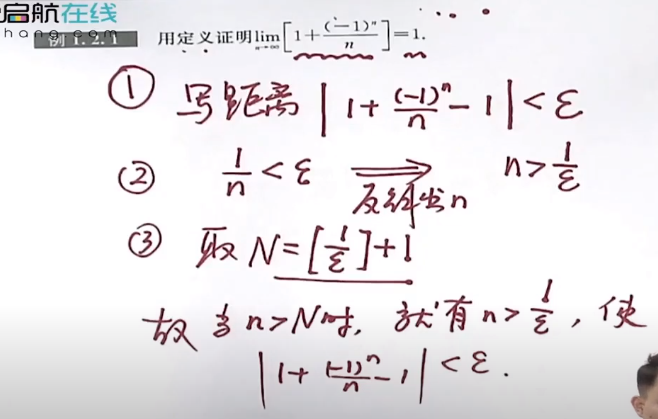 启航在线
hang.com
例 1.2.1 用定义证明 lim n→∞ [1+(-1)ⁿ/n]=1.
① 写距离 |1+(-1)ⁿ/n-1|<ε
② 1/n<ε ⟹ 反解出n n>1/ε
③ 取 N=[1/ε]+1
故当n>N时, 就有n>1/ε, 使
|1+(-1)ⁿ/n-1|<ε.